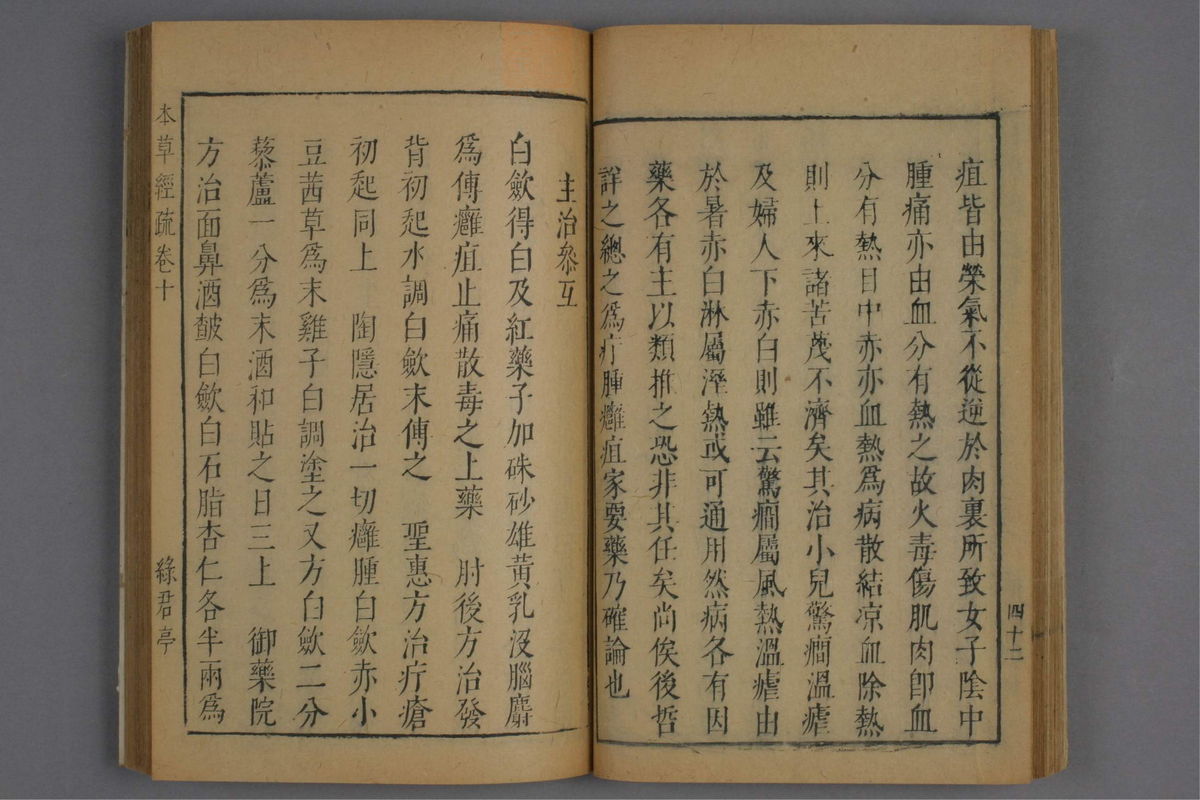 疽皆由榮氣不從逆於肉裏所致女子陰中
腫痛亦由血分有熱之故火毒傷肌肉卽血
分有熱目中赤亦血熱爲病散結凉血除熱
則上來諸苦蔑不濟矣其治小兒驚癎溫瘧
及婦人下赤白則雖云驚癎屬風熱溫瘧由
於暑赤白淋屬溼熱或可通用然病各有因
藥各有主以類推之恐非其任矣尚俟後哲
詳之總之爲疔腫癰疽家要藥乃確論也
四十二
主治叅互
白斂得白及紅藥子加硃砂雄黃乳沒腦麝
爲傅癰疽止痛散毒之上藥　肘後方治發
背初起水調白斂末傅之　聖惠方治疔瘡
初起同上　陶隱居治一切癰腫白斂赤小
豆茜草爲末雞子白調塗之又方白斂二分
藜蘆一分爲末酒和貼之日三上　御藥院
方治面鼻酒皶白斂白石脂杏仁各半兩爲
本草經疏卷十
綠君亭